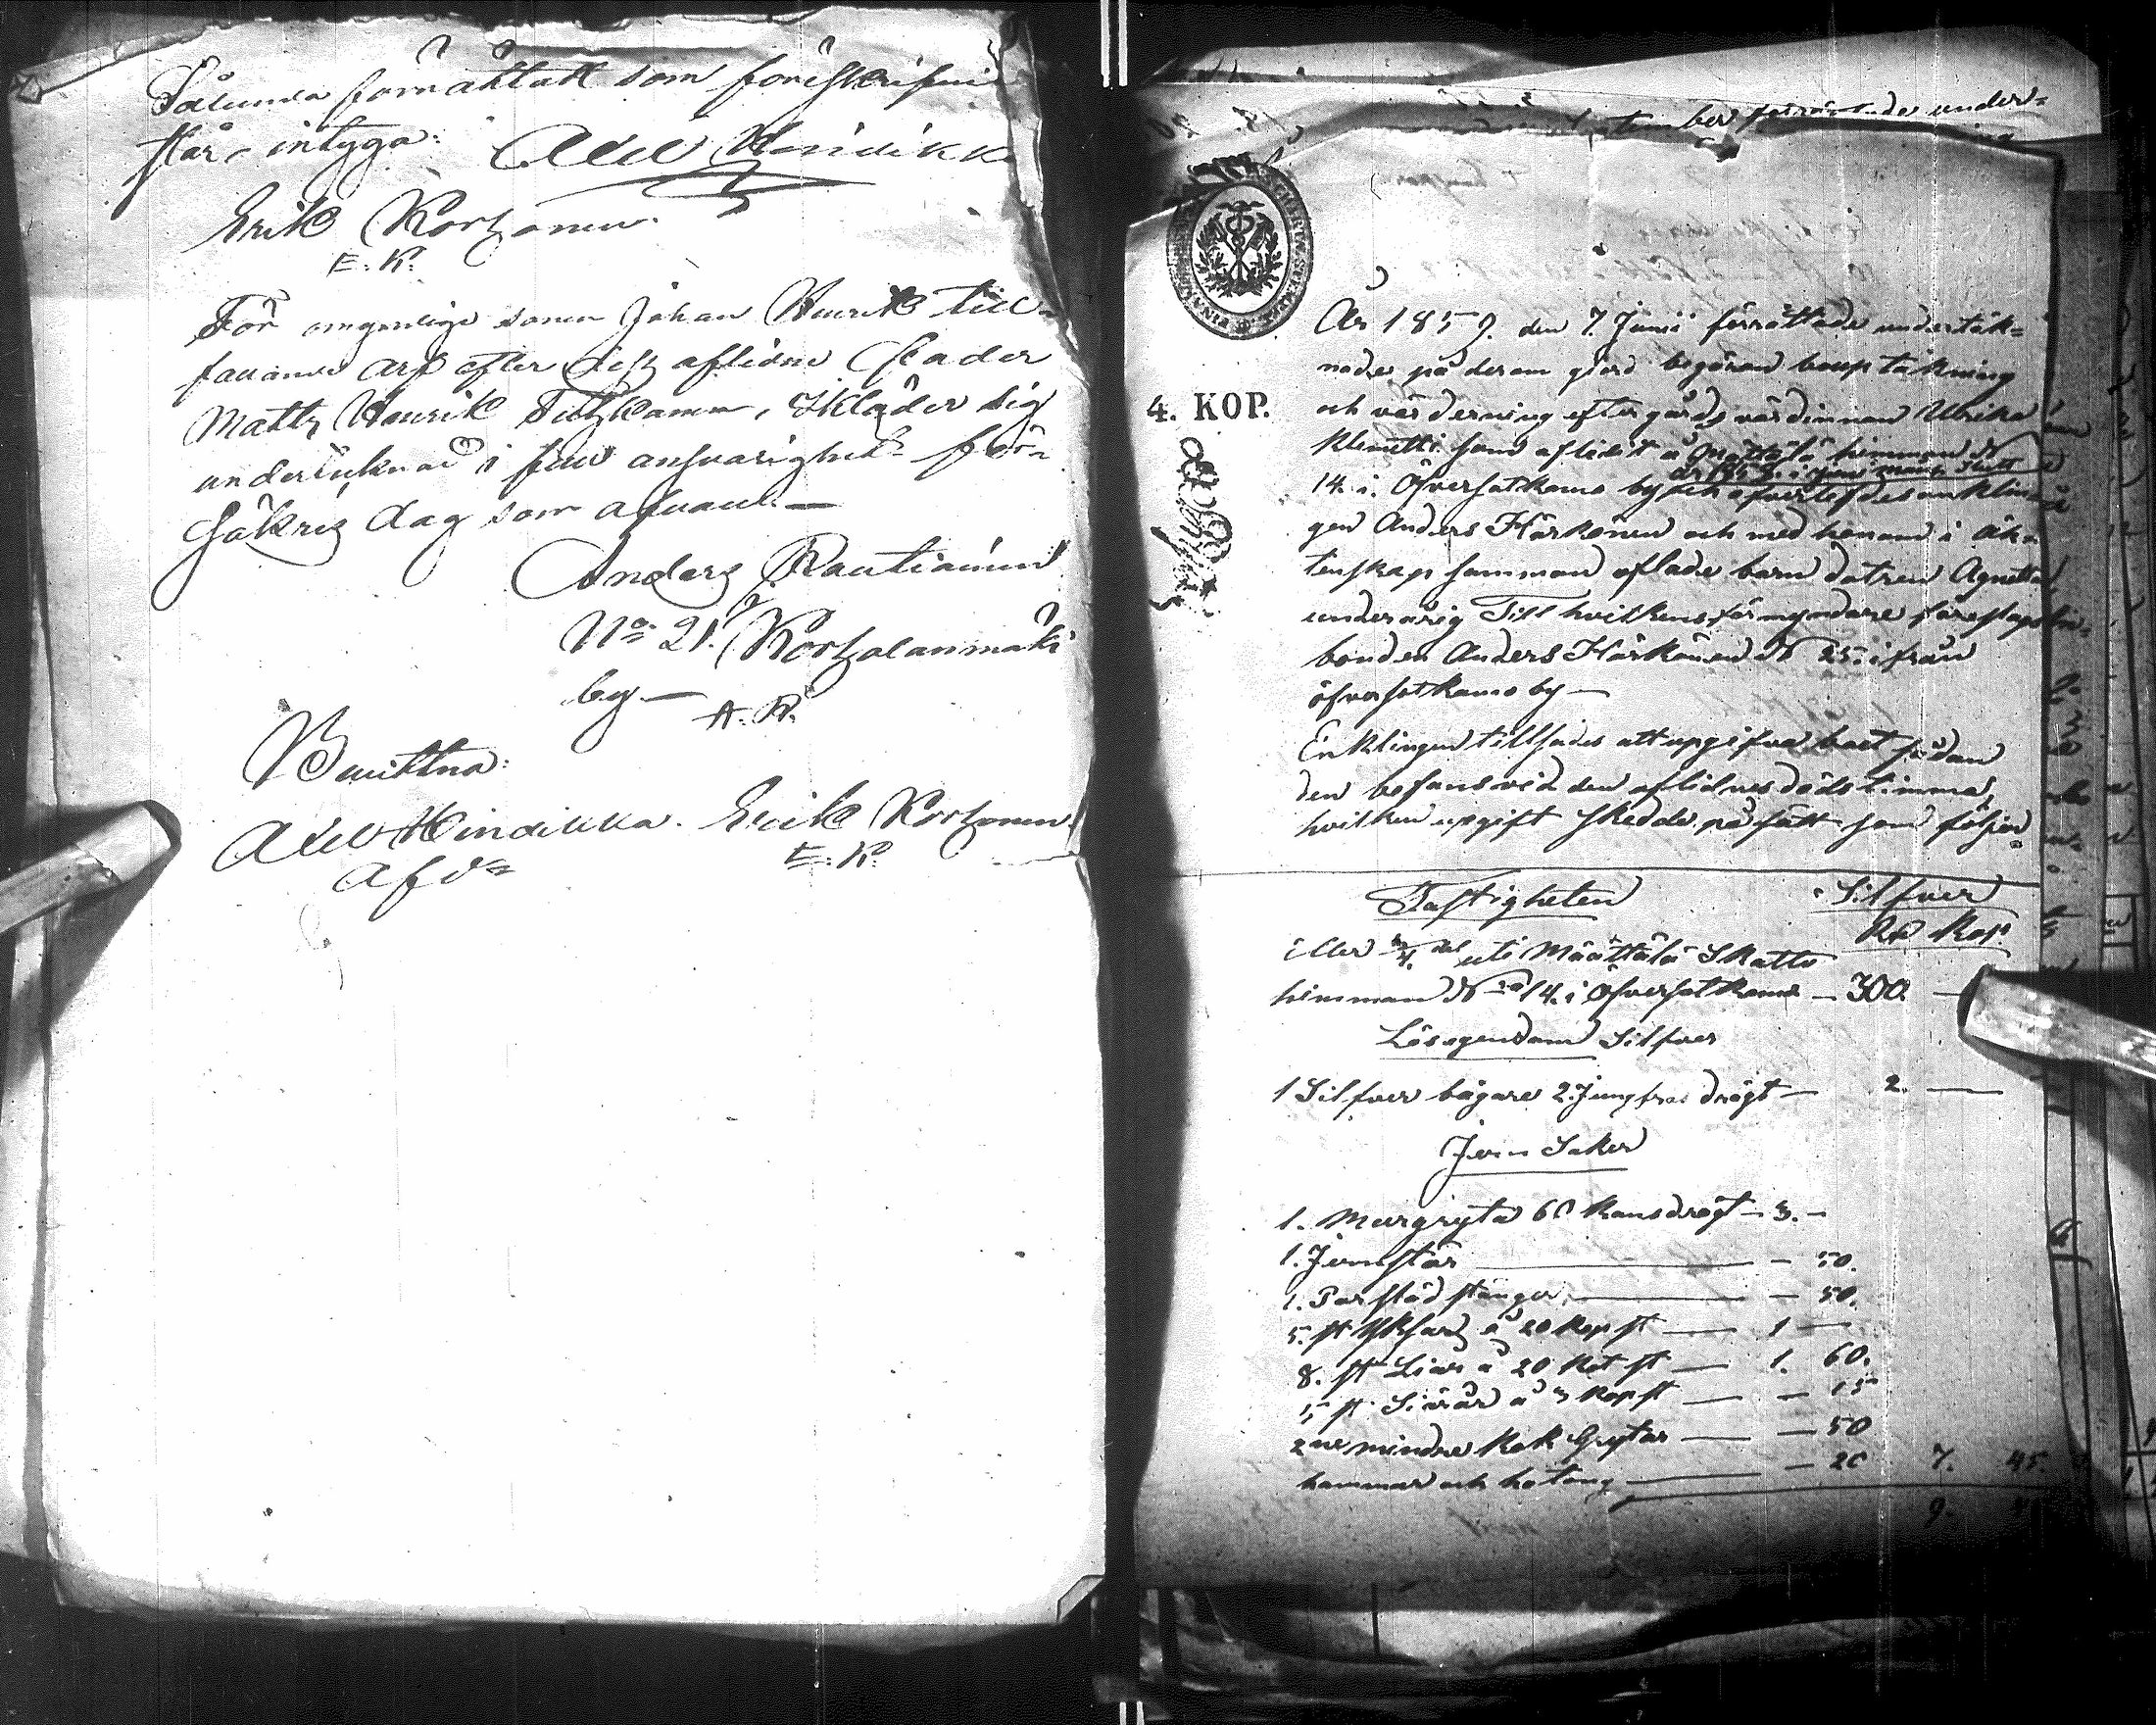 Sålunda förrättadt som föreskrifvit
står, intyga: Abel Hindikka
Erik Kortzonen
E. K.
För omyndige sonen Johan Henrik till-
fallande arf efter dess aflidne fader
Matts Henrik Tuhkanen, ikläder sig
undertecknad i full ansvarighet för
säkrig dag som advaul.—
Anders Rautiainen
No 21. Kortzolanmäki
by— A. R.
Bevittna:
Abel Hindikka. Erik Kortzonen
E. K.
tember förrättade under-
4. KOP.
År 1859. den 7. Junii förrättade undertek-
nade på derom gjord begäran bouptekning
och värderning efter gårds värdinnan Ulrika
Klemetti som aflidit å Määttälä hemman N
14. i Öfversotkamo by och efverlefdes enklin-
gen Anders Härkönen och med honom i äk-
tenskap samman aflade barn dotren Agneta
underårig Till hvilkens förmyndare föreslogs
bonden Anders Härkönen N 25. ifrån
öfversotkamo by—
Enklingen tillsades att upgifva boet sådan
den befans vid den aflidnes dödstimma,
hvilken upgift skedde på sätt som följer
Fastigheten Silfver
Rub Kop
eller del uti Määttälä Skatte
hemman No 14. i Öfversotkamo — 300. —
Lösegendom Silfver
1 Silfver bägare 2. Jungfrus drägt — 2. —
Jern Saker
1. Murgryta 60 Kans drägt — 3. —
1. Jernstör — — 50.
1. Par städ stänger — — 50.
5. st Yksar á 20 Kop st — 1 —
8. st Liar á 20 Kop st — 1. 60.
5 st. Skäror á 3 Kop st — — 15
2ne mindre Kok Grytor — — 50
hammar och hotong — — 20 7. 45.
9.